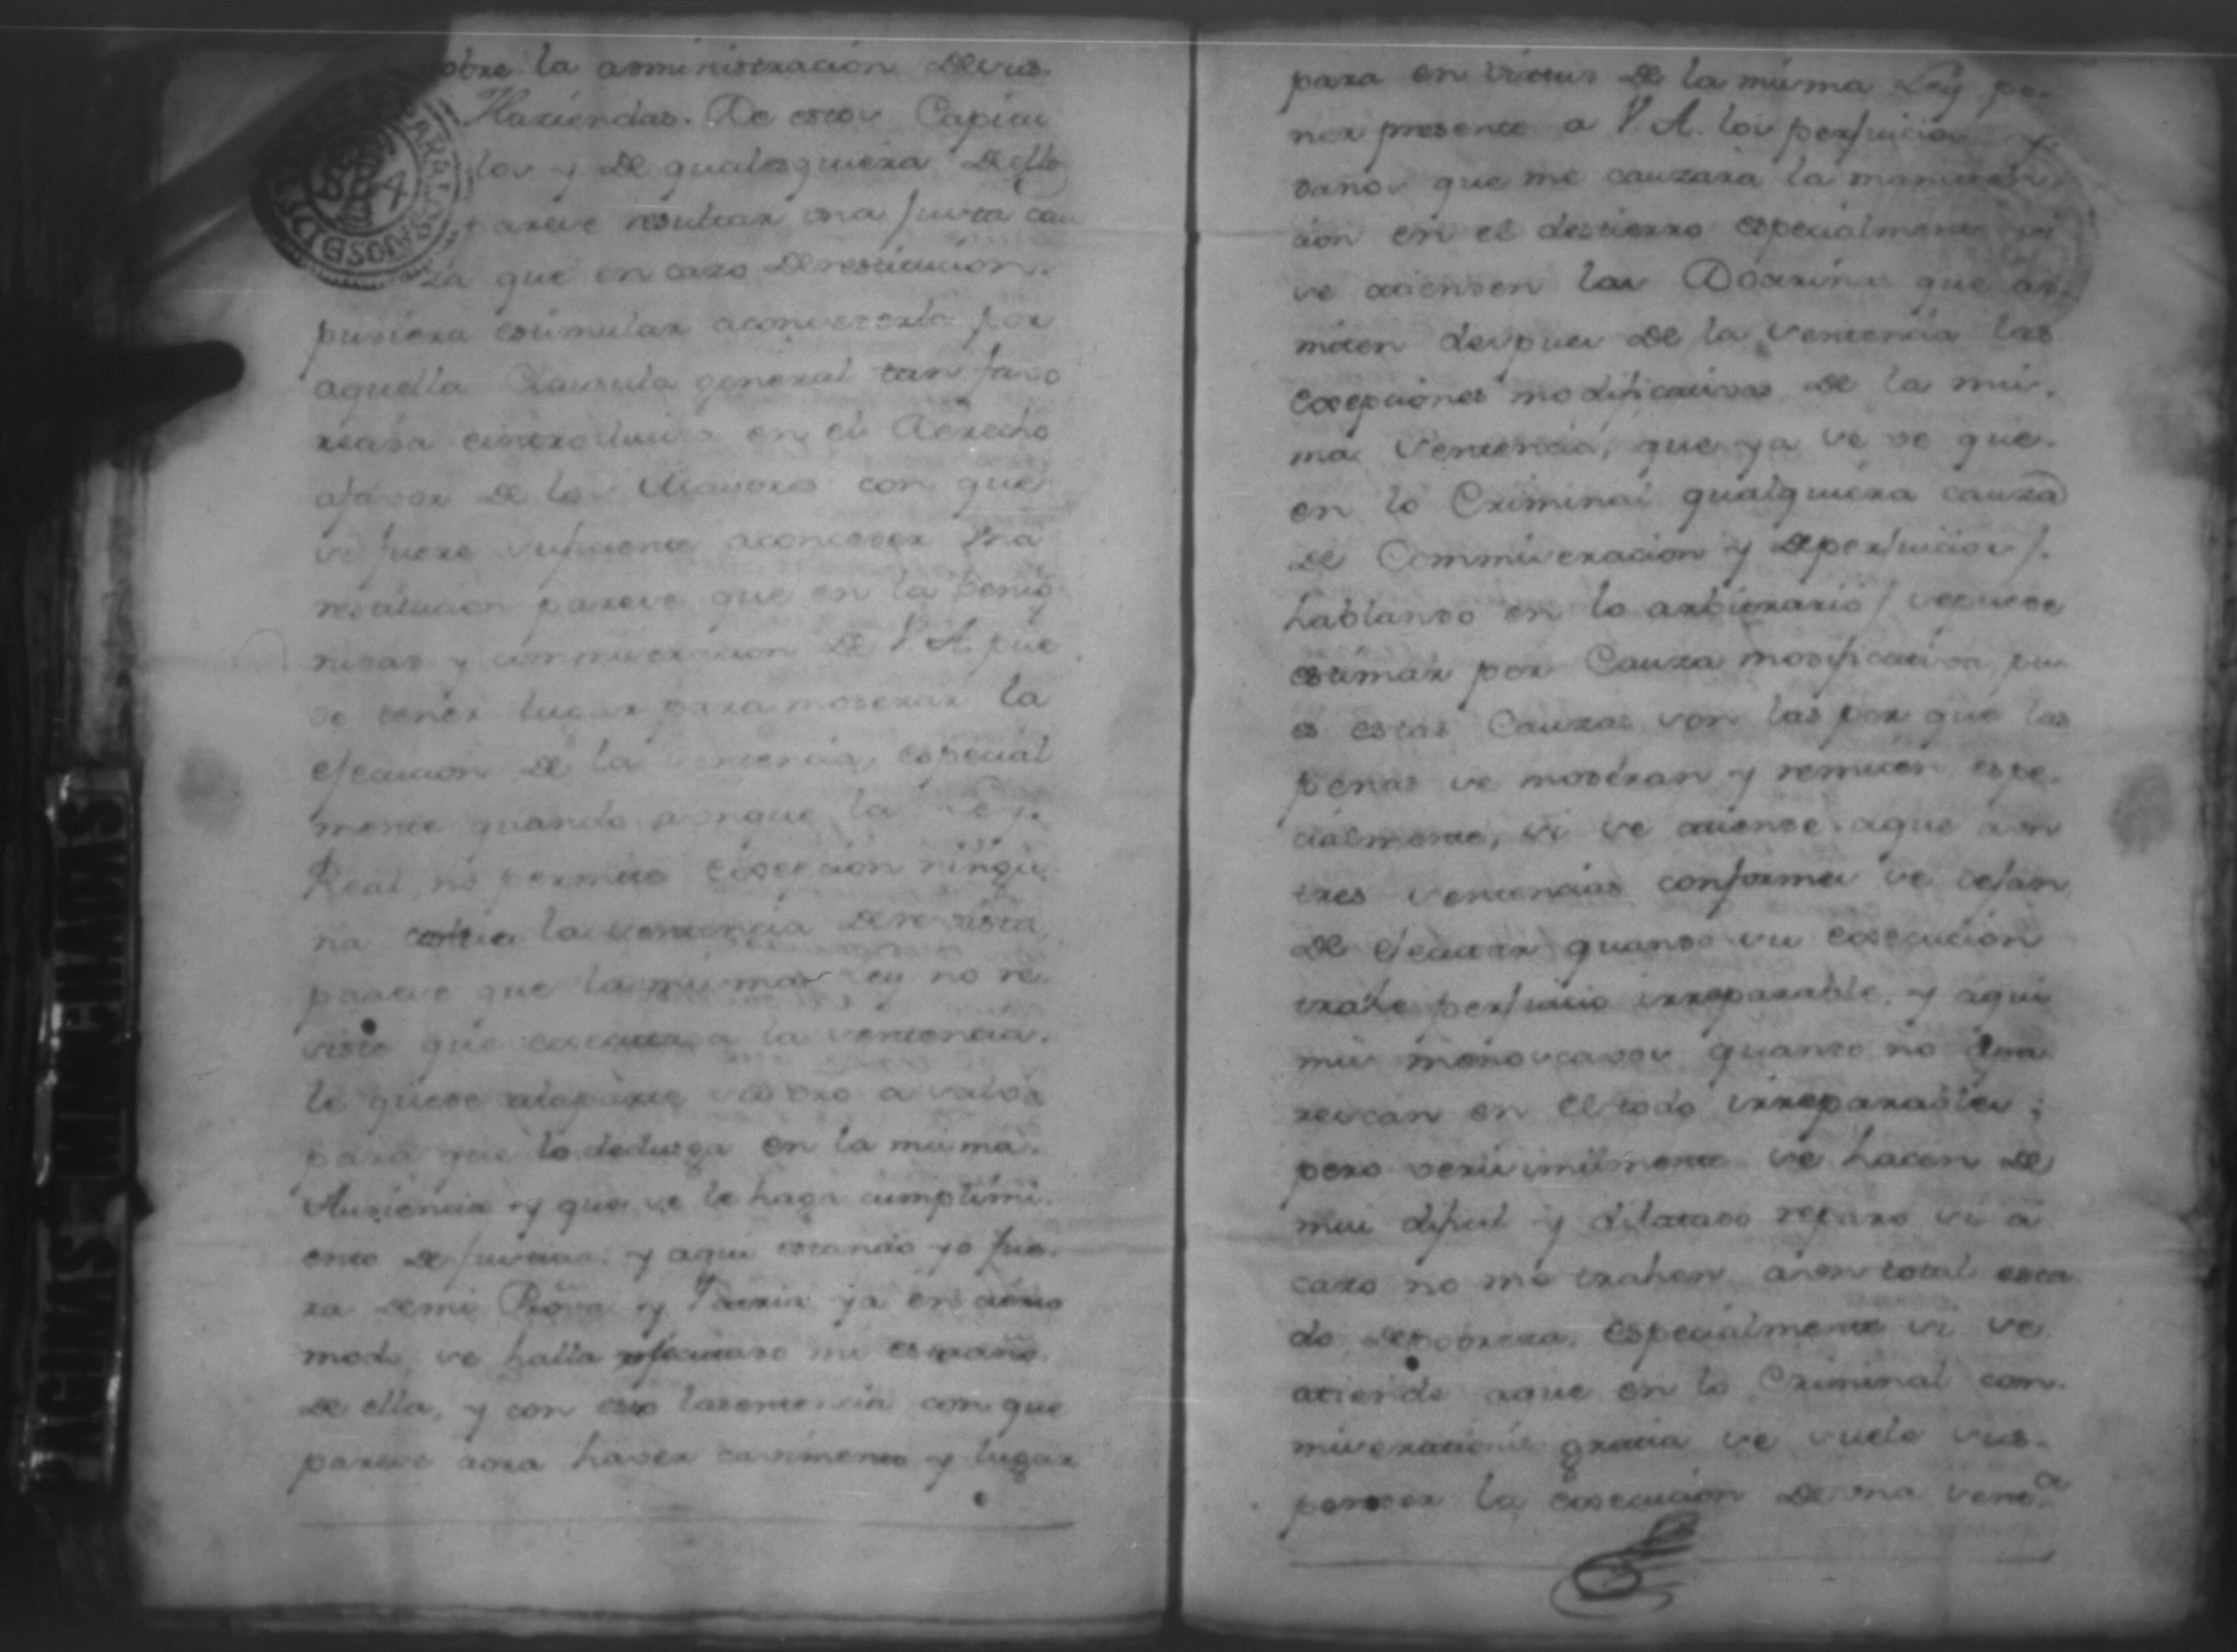 obre la administracion de sus
Haziendas. De estos Capitu
los y de qualesquiera dello
parese resultar una justa cau
za que en cazo de restitucion
pudiera estimular a consederla por
aquella Clausula general tan favo
reada e introducida en el Derecho
afavor de los Mayores con que
si fuere suficiente a conceder una
restitucion parese que en la benig
nidad y commiseracion de V A pue
de tener lugar para moderar la
ejecucion de la sentencia, especial
mente quando aunque la Ley
Real no permite excepcion ningu
na contra la sentencia de revista
parese que la misma Ley no re
siste que executada la sentencia
le quede a la parte su dro a salvo
para que lo dedusga en la misma
Audiencia y que se le haga cumplimi
ento de justicia: y aqui estando yo fue
ra de mi Provª y Patria ya en cierto
modo se halla ejecutado mi estraño
de ella, y con esto la sentencia con que
parese aora haver cavimento y lugar
para en virtud de la misma Ley po
ner presente a V. A. los perjuicios y
daños que me cauzara la mansion
cion en el destierro especialmente si
se atienden las Doctrinas que ad
miten despues de la sentencia las
excepciones modificativas de la mis
ma sentencia, que ya se ve que
en lo Criminal qualquiera cauza
de Commiseracion y de perjuicios /
hablando en lo arbitrario / se puede
estimar por Cauza modificativa pu
es estas Cauzas son las por que las
penas se moderan y remiten espe
cialmente, si se atiende a que aun
tres sentencias conformes se dejan
de ejecutar quando su execucion
trahe perjuicio irreparable, y aqui
mis menoscavos quando no apa
rescan en el todo irreparables;
pero verisimilmente se hacen de
mui dificil y dilatado reparo si a
cazo no me trahen a un total esta
do de pobreza, especialmente si se
atiende a que en lo Criminal com
miserationis gratia se suele sus
pender la execucion de una sentª